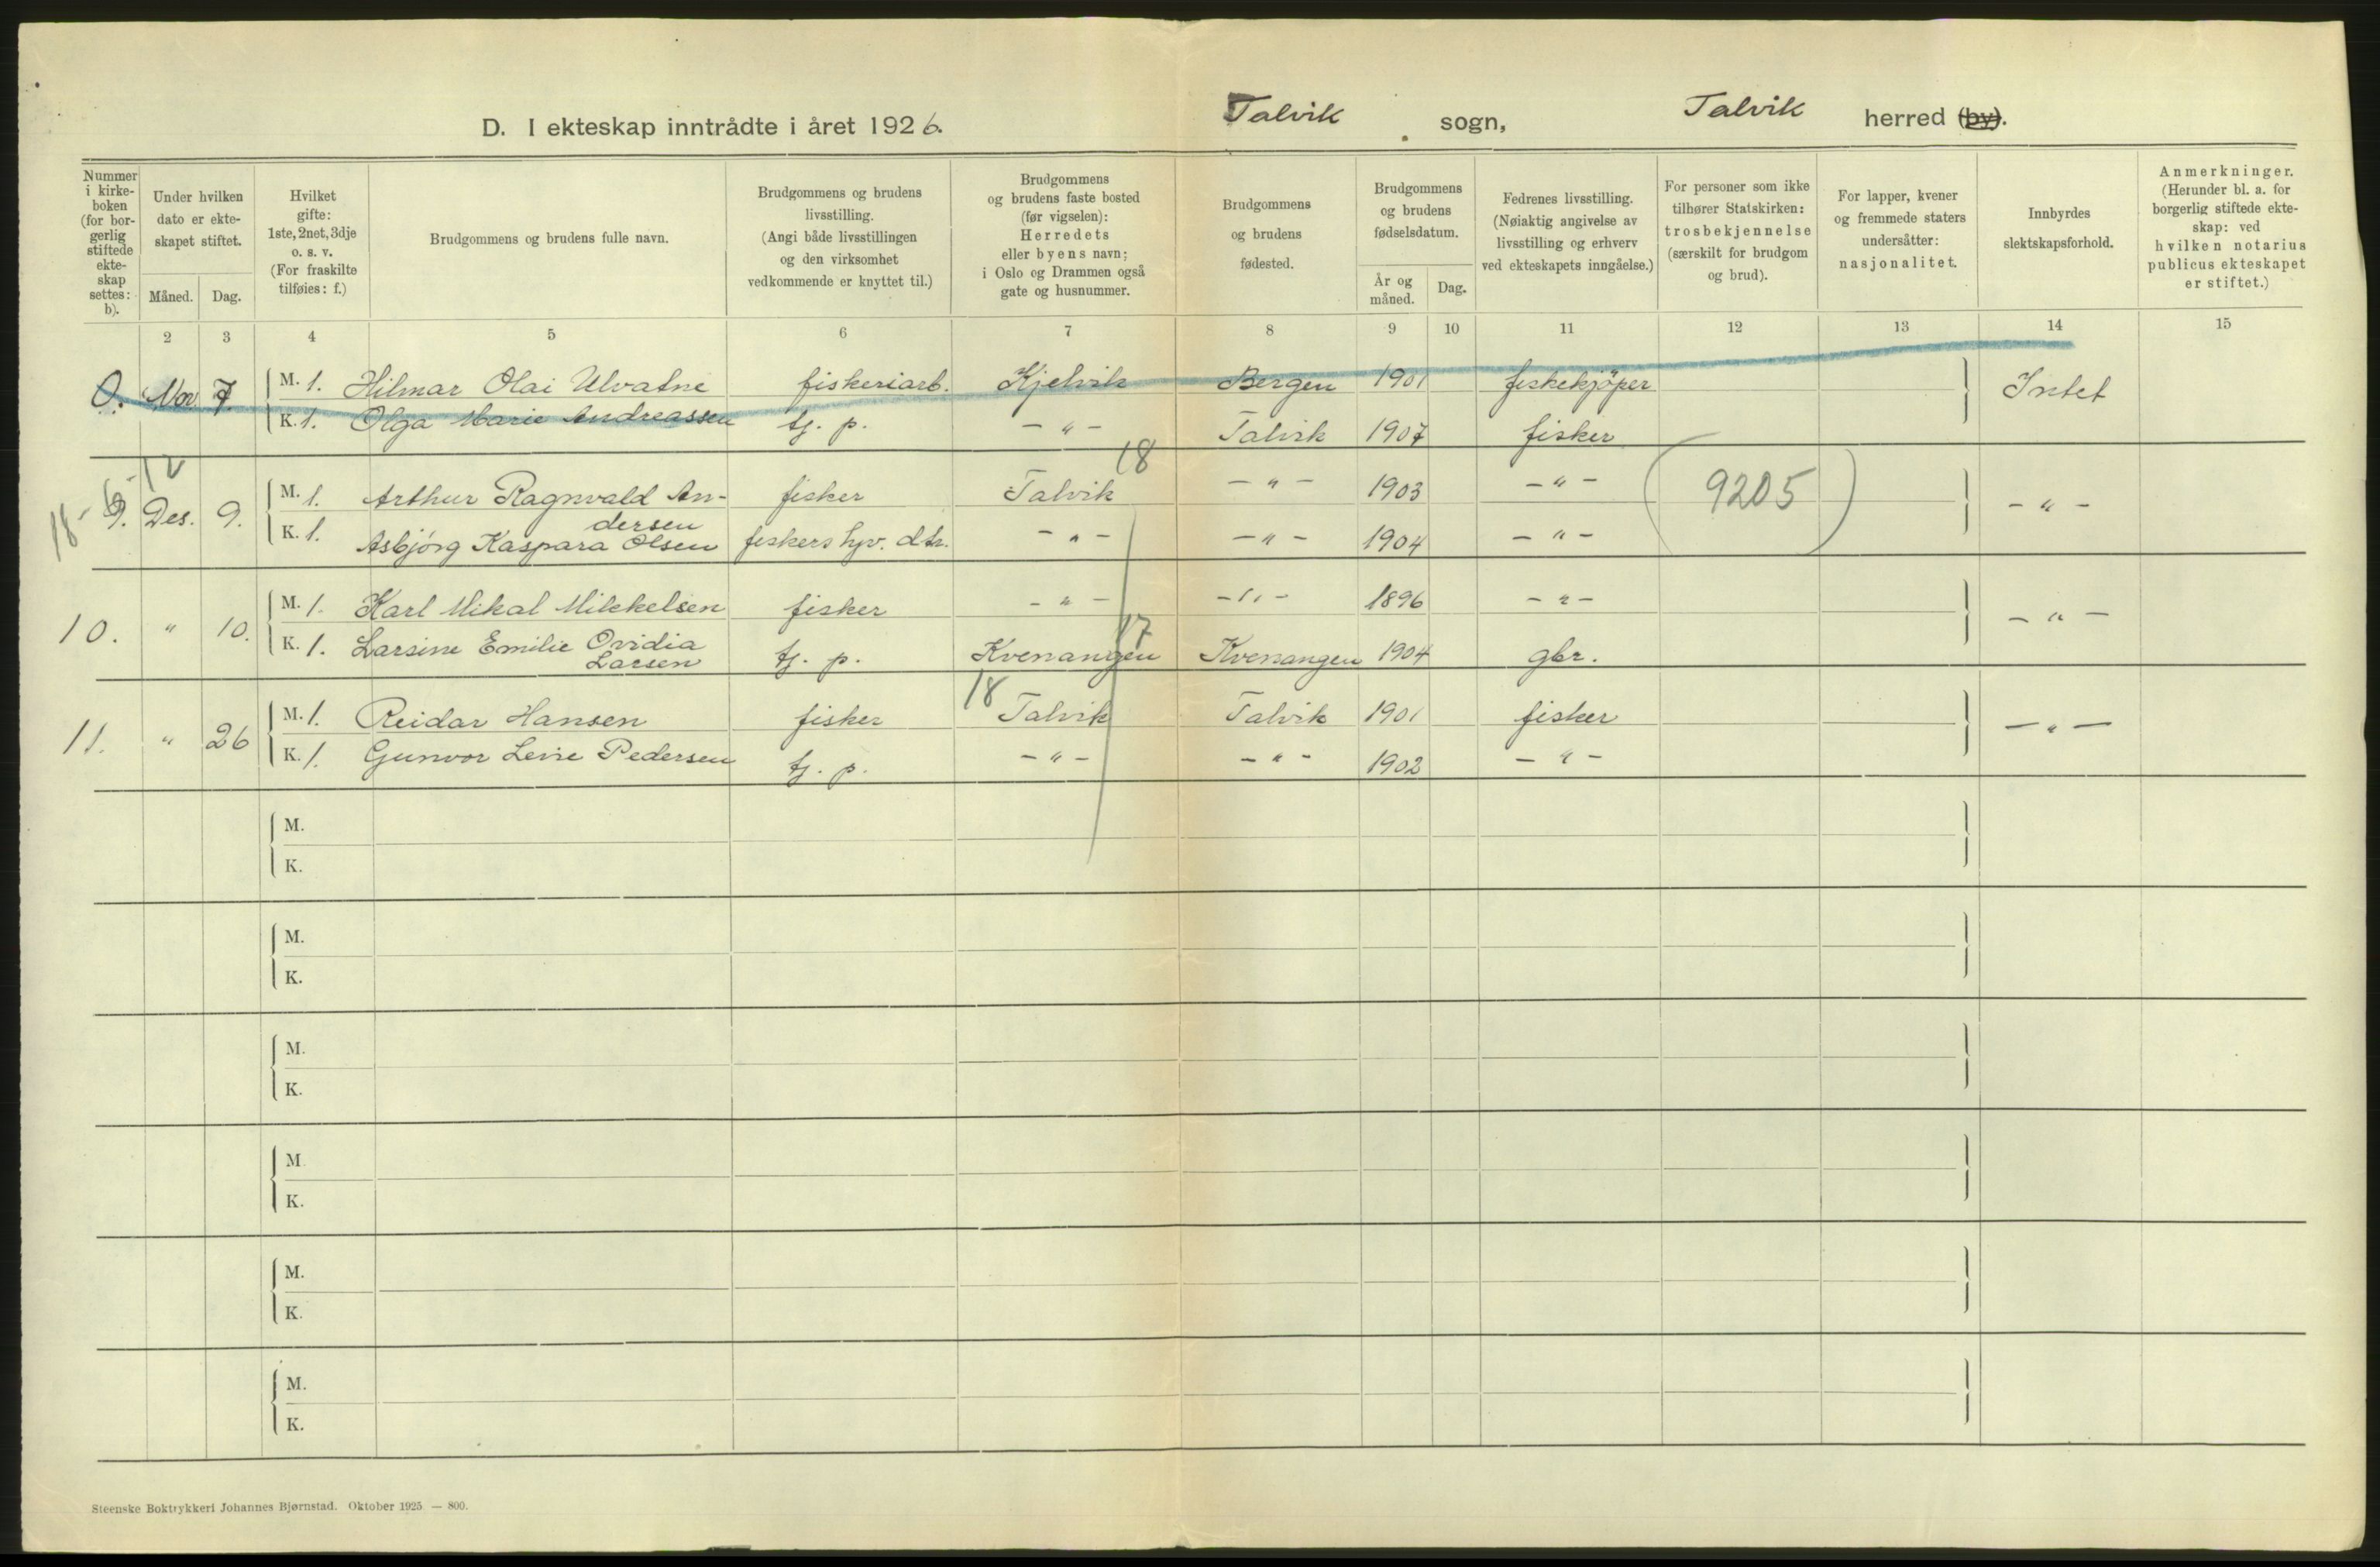 D. I ekteskap inntrådte i året 1926.
Talvik sogn, Talvik herred (by).
Nummer i kirke-boken (for bor-gerlig stiftede ekte-skap settes: b).
Under hvilken dato er ekte-skapet stiftet.
Måned. Dag.
Hvilket gifte: 1ste, 2net, 3dje o. s. v. (For fraskilte tilføies: f.)
Brudgommens og brudens fulle navn.
Brudgommens og brudens livsstilling. (Angi både livsstillingen og den virksomhet vedkommende er knyttet til.)
Brudgommens og brudens faste bosted (før vigselen): Herredets eller byens navn; i Oslo og Drammen også gate og husnummer.
Brudgommens og brudens fødested.
Brudgommens og brudens fødselsdatum.
År og måned. Dag.
Fedrenes livsstilling. (Nøiaktig angivelse av livsstilling og erhverv ved ekteskapets inngåelse.)
For personer som ikke tilhører Statskirken: trosbekjennelse (særskilt for brudgom og brud).
For lapper, kvener og fremmede staters undersåtter: nasjonalitet.
Innbyrdes slektskapsforhold.
Anmerkninger. (Herunder bl. a. for borgerlig stiftede ekte-skap: ved hvilken notarius publicus ekteskapet er stiftet.)
2 3 4 5 6 7 8 9 10 11 12 13 14 15
Nov 7. M. 1. Hilmar Olai Ulvatne fiskeriarb. Kjelvik Bergen 1901 fiskekjöper Intet
K. 1. Olga Marie Andreassen tj. p. - " - Talvik 1907 fisker
12 18
18 - 9. Des. 9. M. 1. Arthur Ragnvald An- fisker Talvik - " - 1903 - " - (9205) - " -
dersen
K. 1. Asbjörg Kaspara Olsen fiskers hjv. dtr. - " - - " - 1904 - " -
10. " 10. M. 1. Karl Mikal Mikkelsen fisker - " - - " - 1896 - " - - " -
K. 1. Larsine Emilie Ovidia tj. p. Kvenangen Kvenangen 1904 gbr.
Larsen
17
18
11. " 26 M. 1. Reidar Hansen fisker Talvik Talvik 1901 fisker - " -
K. 1. Gunvor Levie Pedersen tj. p. - " - - " - 1902 - " -
M.
K.
M.
K.
M.
K.
M
K.
M.
K.
M.
K.
Steenske Boktrykkeri Johannes Bjørnstad. Oktober 1925 — 800.